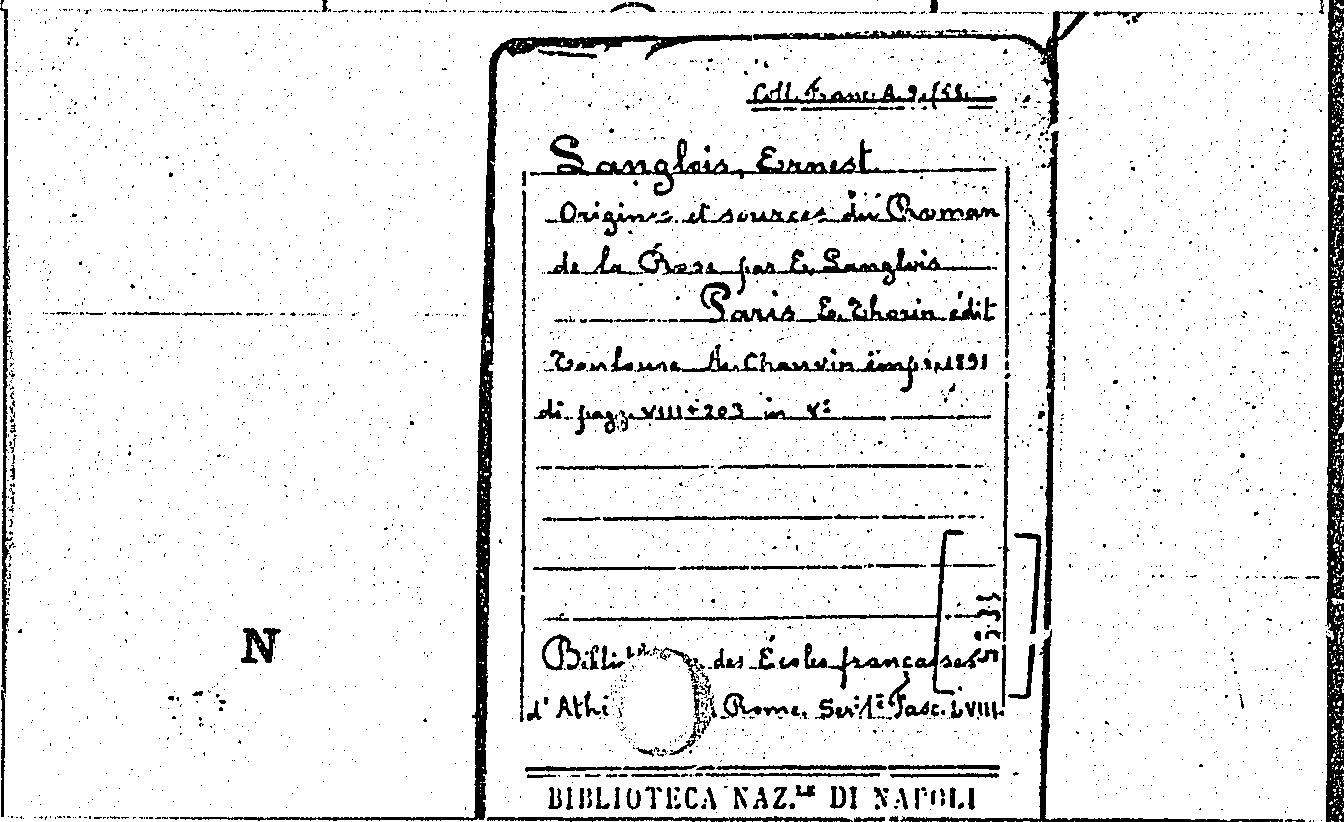 Coll. Franc. A. 9. (58.
Langlois, Ernest.
Origines et sources du Roman
de la Rose par E. Langlois
Paris E. Thorin édit
Toulouse A. Chauvin impr. 1891
di pagg. VIII+203 in 8º
Biblio des Écoles françaises
d'Athè Rome. Ser. 1ª Fasc. LVIII.
N
BIBLIOTECA NAZ.LE DI NAPOLI